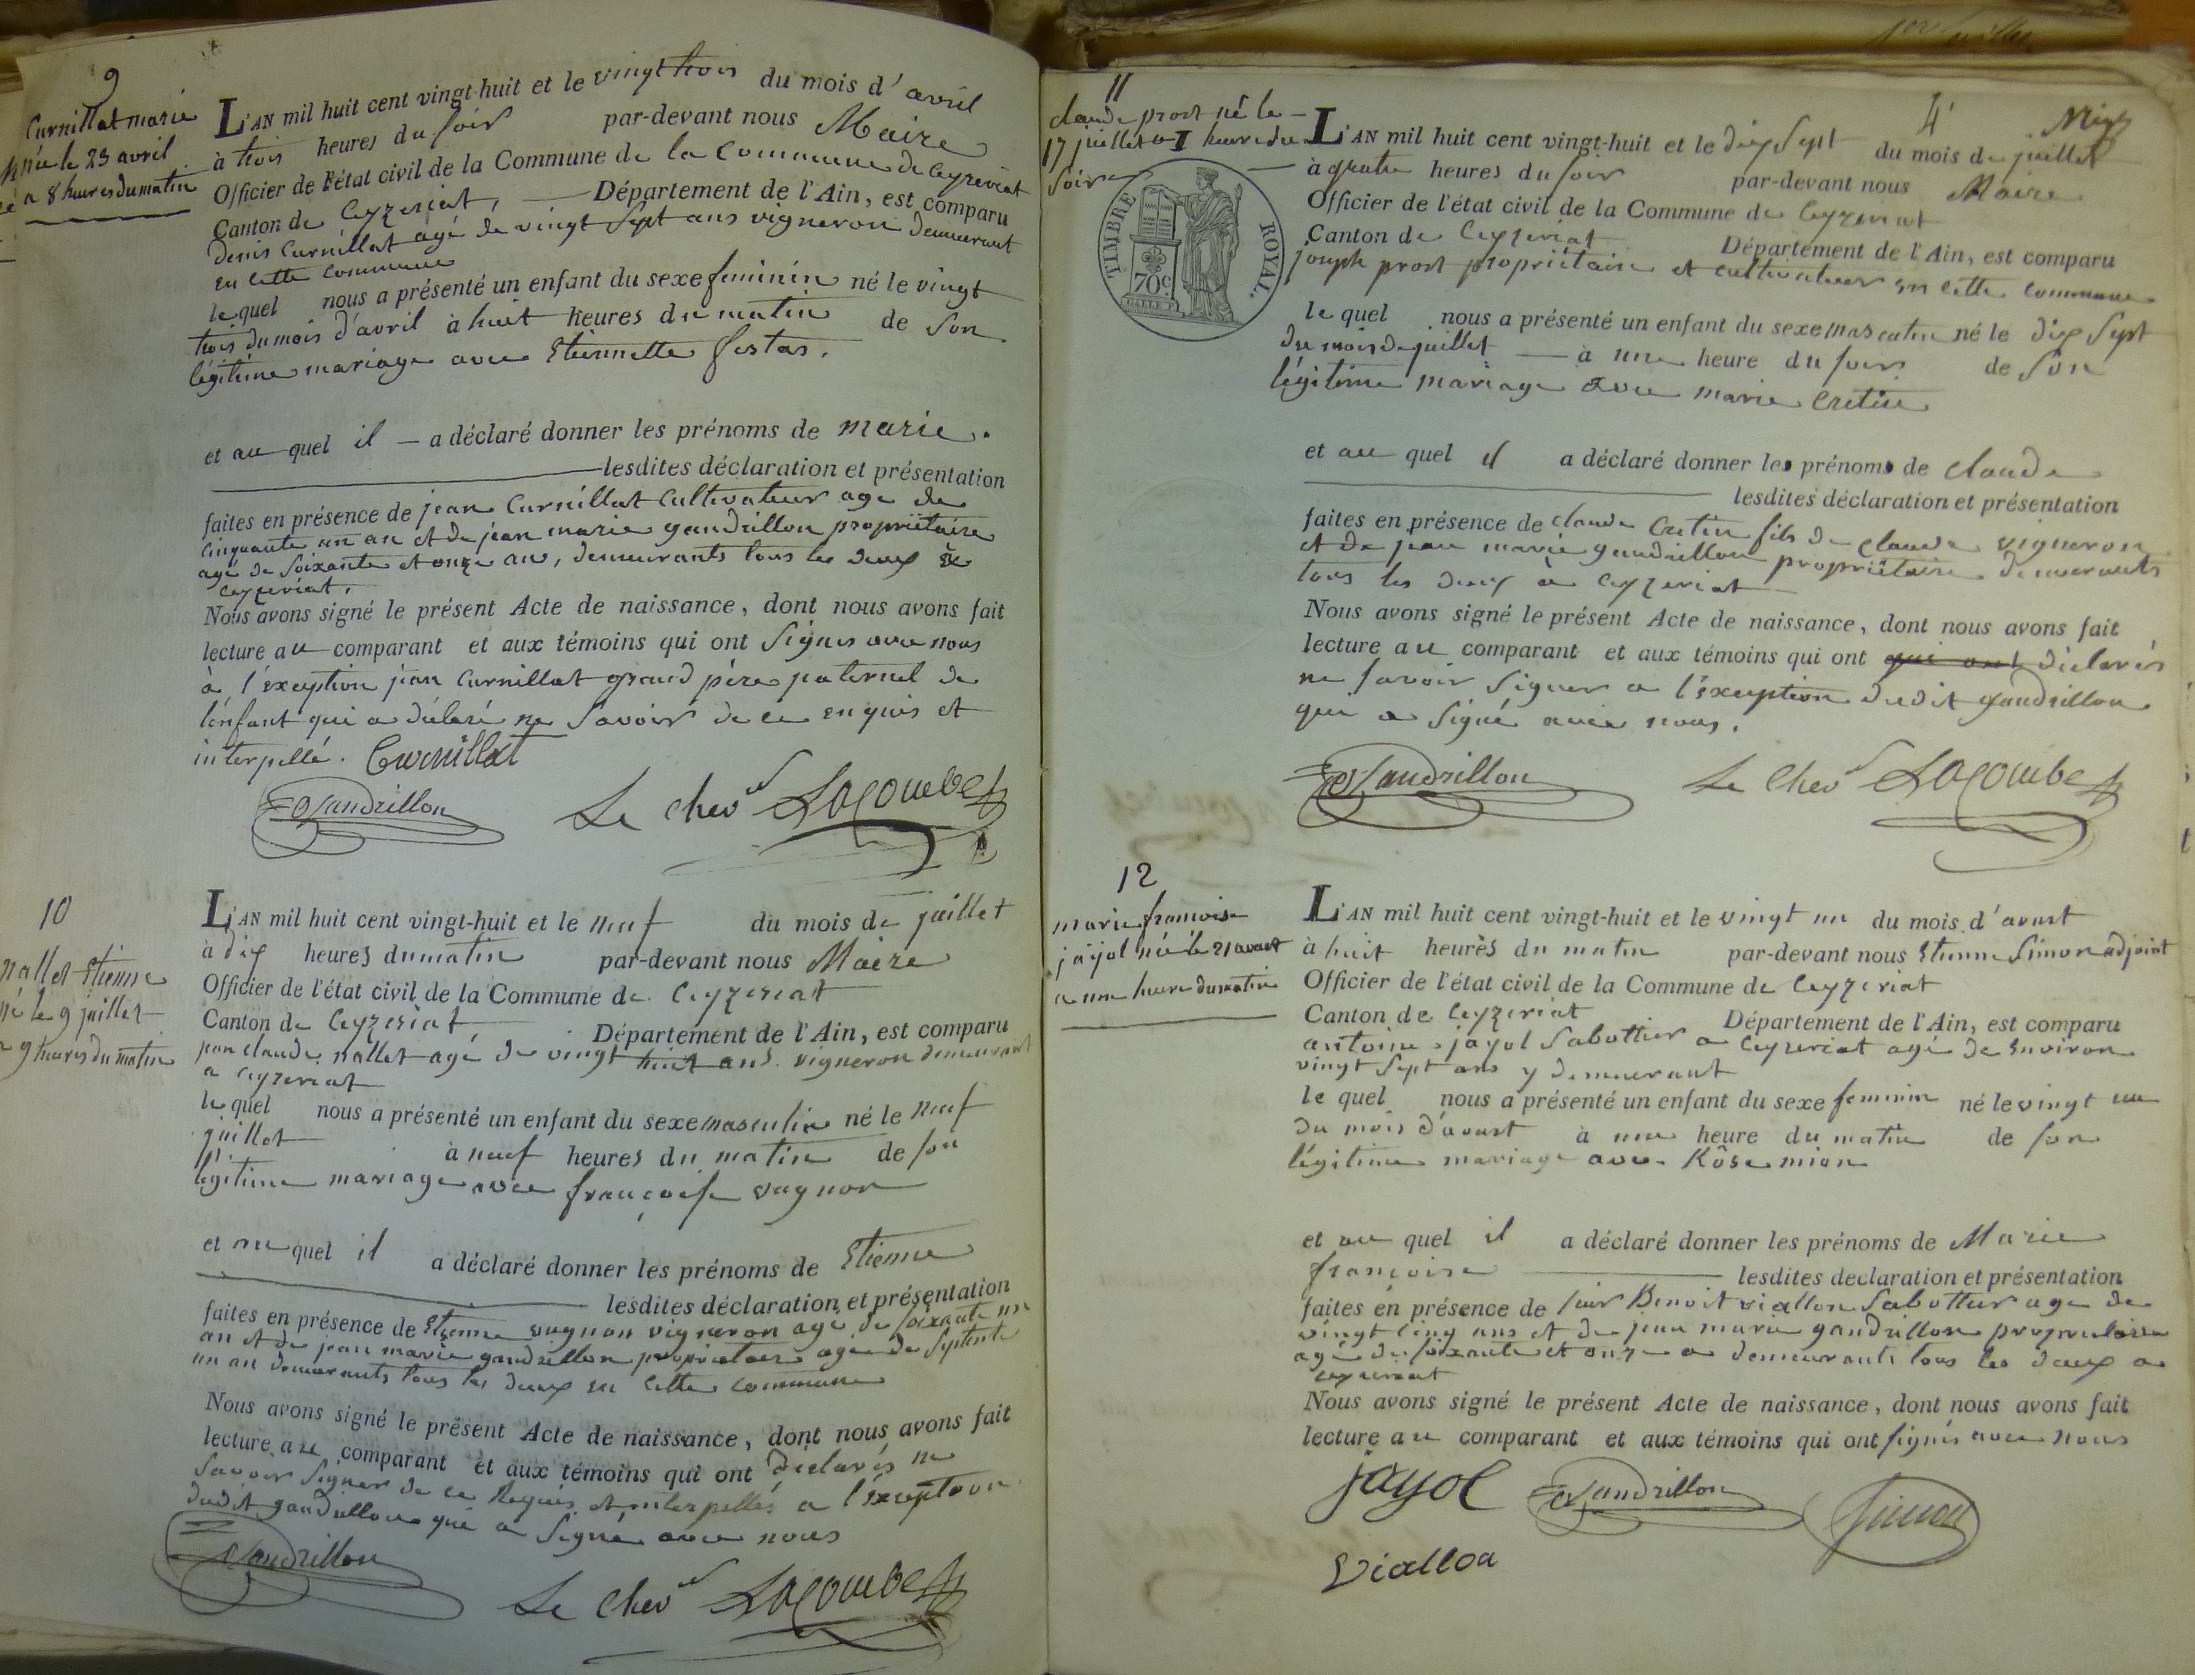 9
Curnillat marie
née le 23 avril
a 8 heures du matin
L'AN mil huit cent vingt-huit et le vingt trois du mois d'avril
à trois heures du soir par-devant nous Maire
Officier de l'état civil de la Commune de la Commune de Ceyzeriat
Canton de Ceyzeriat, Département de l'Ain, est comparu
Denis Curnillat agé de vingt sept ans vigneron demeurant
en cette commune
le quel nous a présenté un enfant du sexe feminin né le vingt
trois du mois d'avril à huit heures du matin de son
légitime mariage avec Etiennette festas.
et au quel il a déclaré donner les prénoms de marie.
lesdites déclaration et présentation
faites en présence de jean Curnillat Cultivateur age de
cinquante un an et de jean marie gandrillon propriétaire
agé de soixante et onze ans, demeurants tous les deux à
ceyzeriat.
Nous avons signé le présent Acte de naissance, dont nous avons fait
lecture au comparant et aux témoins qui ont signés avec nous
à l'éxception jean Curnillat grand père paternel de
l'enfant qui a déclaré ne savoir de ce enquis et
interpellé. Curnillat
Gandrillon Le Chev Lacombe
10
nallet Etienne
né le 9 juillet
a 9 heures du matin
L'AN mil huit cent vingt-huit et le neuf du mois de juillet
à dix heures du matin par-devant nous Maire
Officier de l'état civil de la Commune de Ceyzeriat
Canton de Ceyzeriat Département de l'Ain, est comparu
jean claude nallet agé de vingt huit ans vigneron demeurant
a ceyzeriat
le quel nous a présenté un enfant du sexe masculin né le neuf
juillet à neuf heures du matin de son
légitime mariage avec françoise vugnon
et au quel il a déclaré donner les prénoms de Etienne
lesdites déclaration et présentation
faites en présence de Etienne vugnon vigneron agé de soixante un
an et de jean marie gandrillon propriétaire agée de septente
un an demeurants tous les deux en cette commune
Nous avons signé le présent Acte de naissance, dont nous avons fait
lecture au comparant et aux témoins qui ont déclarés ne
savoir signer de ce Requis et interpellés a l'éxception
dudit gandrillon qui a signé avec nous
Gandrillon
Le Chev Lacombe
11
claude prost né le
17 juillet a 1 heure du
soir
TIMBRE ROYAL.
70c
4
L'AN mil huit cent vingt-huit et le dix sept du mois de juillet
à quatre heures du soir par-devant nous Maire
Officier de l'état civil de la Commune de Ceyzeriat
Canton de Ceyzeriat Département de l'Ain, est comparu
joseph prost propriétaire et cultivateur en cette commune
le quel nous a présenté un enfant du sexe masculin né le dix sept
du mois de juillet à une heure du soir de son
légitime mariage avec marie Cretin
et au quel il a déclaré donner les prénoms de claude
lesdites déclaration et présentation
faites en présence de claude Cretin fils de claude vigneron
et de jean marie gandrillon propriétaire demeurants
tous les deux à ceyzeriat
Nous avons signé le présent Acte de naissance, dont nous avons fait
lecture au comparant et aux témoins qui ont qui ont déclarés
ne savoir signer a l'éxception dudit gandrillon
qui a signé avec nous.
Gandrillon Le Chev Lacombe
12
marie françoise
jayol née le 21 avout
a une heure du matin
L'AN mil huit cent vingt-huit et le vingt un du mois d'avout
à huit heures du matin par-devant nous Etienne Simon adjoint
Officier de l'état civil de la Commune de Ceyzeriat
Canton de Ceyzeriat Département de l'Ain, est comparu
antoine jayol Sabottier a Ceyzeriat agé de Environ
vingt sept ans y demeurant
le quel nous a présenté un enfant du sexe feminin né le vingt un
du mois d'avout à une heure du matin de son
légitime mariage avec Rôse mion
et au quel il a déclaré donner les prénoms de Marie
françoise lesdites declaration et présentation
faites en présence de Benoit viallon Sabottier age de
vingt cinq ans et de jean marie gandrillon propriétaire
agé de soixante et onze a demeurants tous les deux a
ceyzeriat
Nous avons signé le présent Acte de naissance, dont nous avons fait
lecture au comparant et aux témoins qui ont signés avec nous
jayol Gandrillon Simon
Viallon